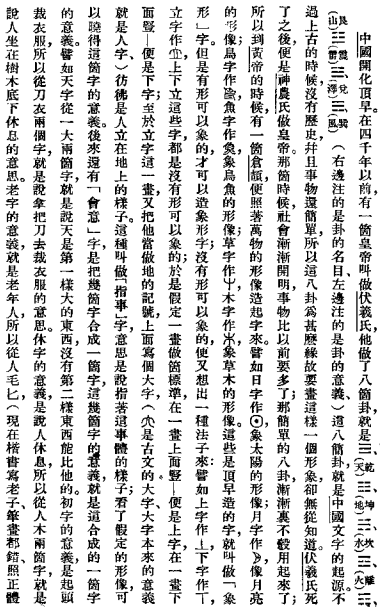 中國開化頂早。在四千年以前，有一箇皇帝叫做伏羲氏，他做了八箇卦，就是☰乾（天）、☷坤（地）、☵坎（水）、☲離（火）、
☶艮（山）、☳震（雷）、☱兌（澤）、☴巽（風）（右邊注的是卦的名目，左邊注的是卦的意義）這八箇卦就是中國文字的起源。不
過上古的時候，沒有歷史，幷且事物還簡單，所以這八卦爲甚麼緣故要畫這樣一個形象，卻無從知道。伏羲氏死
了之後，便是神農氏做皇帝。那箇時候，社會漸漸開明，事物比以前要多了，那簡單的八卦，漸漸裏不彀用起來了。
所以到黃帝的時候，有一箇倉頡，便照著萬物的形像，造起字來。譬如日字作⊙，象太陽的形像；月字作，象月亮
的形像；鳥字作，魚字作，象鳥魚的形像；草字作屮，木字作，象草木的形像。這些是頂早造的字，就叫做「象
形」字。但是有形可以象的，才可以造象形字；沒有形可以象的，便又想出一種法子來：譬如上字作丄，下字作丅，
立字作，上下立這些字都是沒有形可以象的；於是假定一畫做箇標準，在一畫上面豎一便是上字，在一畫下
面豎一便是下字；至於立字，這一畫又把他當做地的記號，上面寫個大字（是古文的大字，大字本來的意義
就是人字），彷彿是人立在地上的樣子。這種叫做「指事」字，意思是說指著這事體的樣子；看了假定的形像，可
以曉得這箇字的意義。後來還有「會意」字，是把幾箇字合成一箇字，這幾箇字的意義，就是這合成的一箇字
的意義。譬如天字從一大兩箇字，就是說天是第一樣大的東西，沒有第二樣東西能比他的。初字的意義是起頭
裁衣服，所以從刀衣兩個字，就是說拿把刀去裁衣服的意思。休字的意義是說人休息，所以從人木兩箇字，就是
說人坐在樹木底下休息的意思。老字的意義，就是老年人，所以從人毛匕（現在楷書寫老子，筆畫都錯，照正體